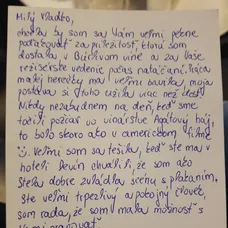 Milý Vladko,
chcela by som sa Vám veľmi pekne
poďakovať za príležitosť, ktorú som
dostala v Búrlivom víne a za Vaše
režisérske vedenie počas natáčaní. Práca
malej herečky ma veľmi bavila, moja
postava si toho užila viac než dosť
Nikdy nezabudnem na deň, keď sme
točili požiar vo vinárstve
to bolo skoro ako v americkom filme
Veľmi som sa tešila, keď ste ma v
hoteli Devín chválili, že som ako
Stela dobre zvládla scénu s plakaním.
Ste veľmi trpezlivý a pokojný človek,
som rada, že som mala možnosť s
Vami pracovať